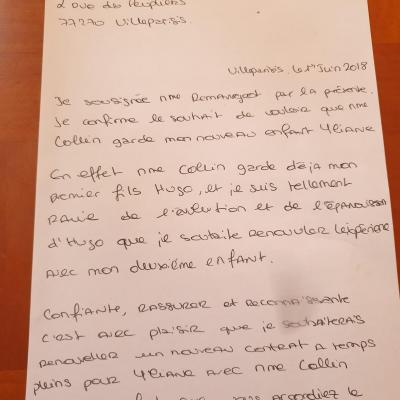 2 Rue des Peupliers
77270 Villeparisis.
Villeparisis, le 1er Juin 2018
Je soussignée Mme par la présente.
Je confirme le souhait de vouloir que Mme
Collin garde mon nouveau enfant Yliane
En effet Mme Collin garde déja mon
premier fils Hugo, et je suis tellement
Ravie de l'évolution et de l'épanouissement
d'Hugo que je souhaite Renouveler l'expérience
avec mon deuxième enfant.
Confiante, RASSURER et Reconnaissante
C'est avec plaisir que je souhaiterais
Renouveller un nouveau contrat a temps
pleins pour Yliane avec Mme Collin
accordiez le